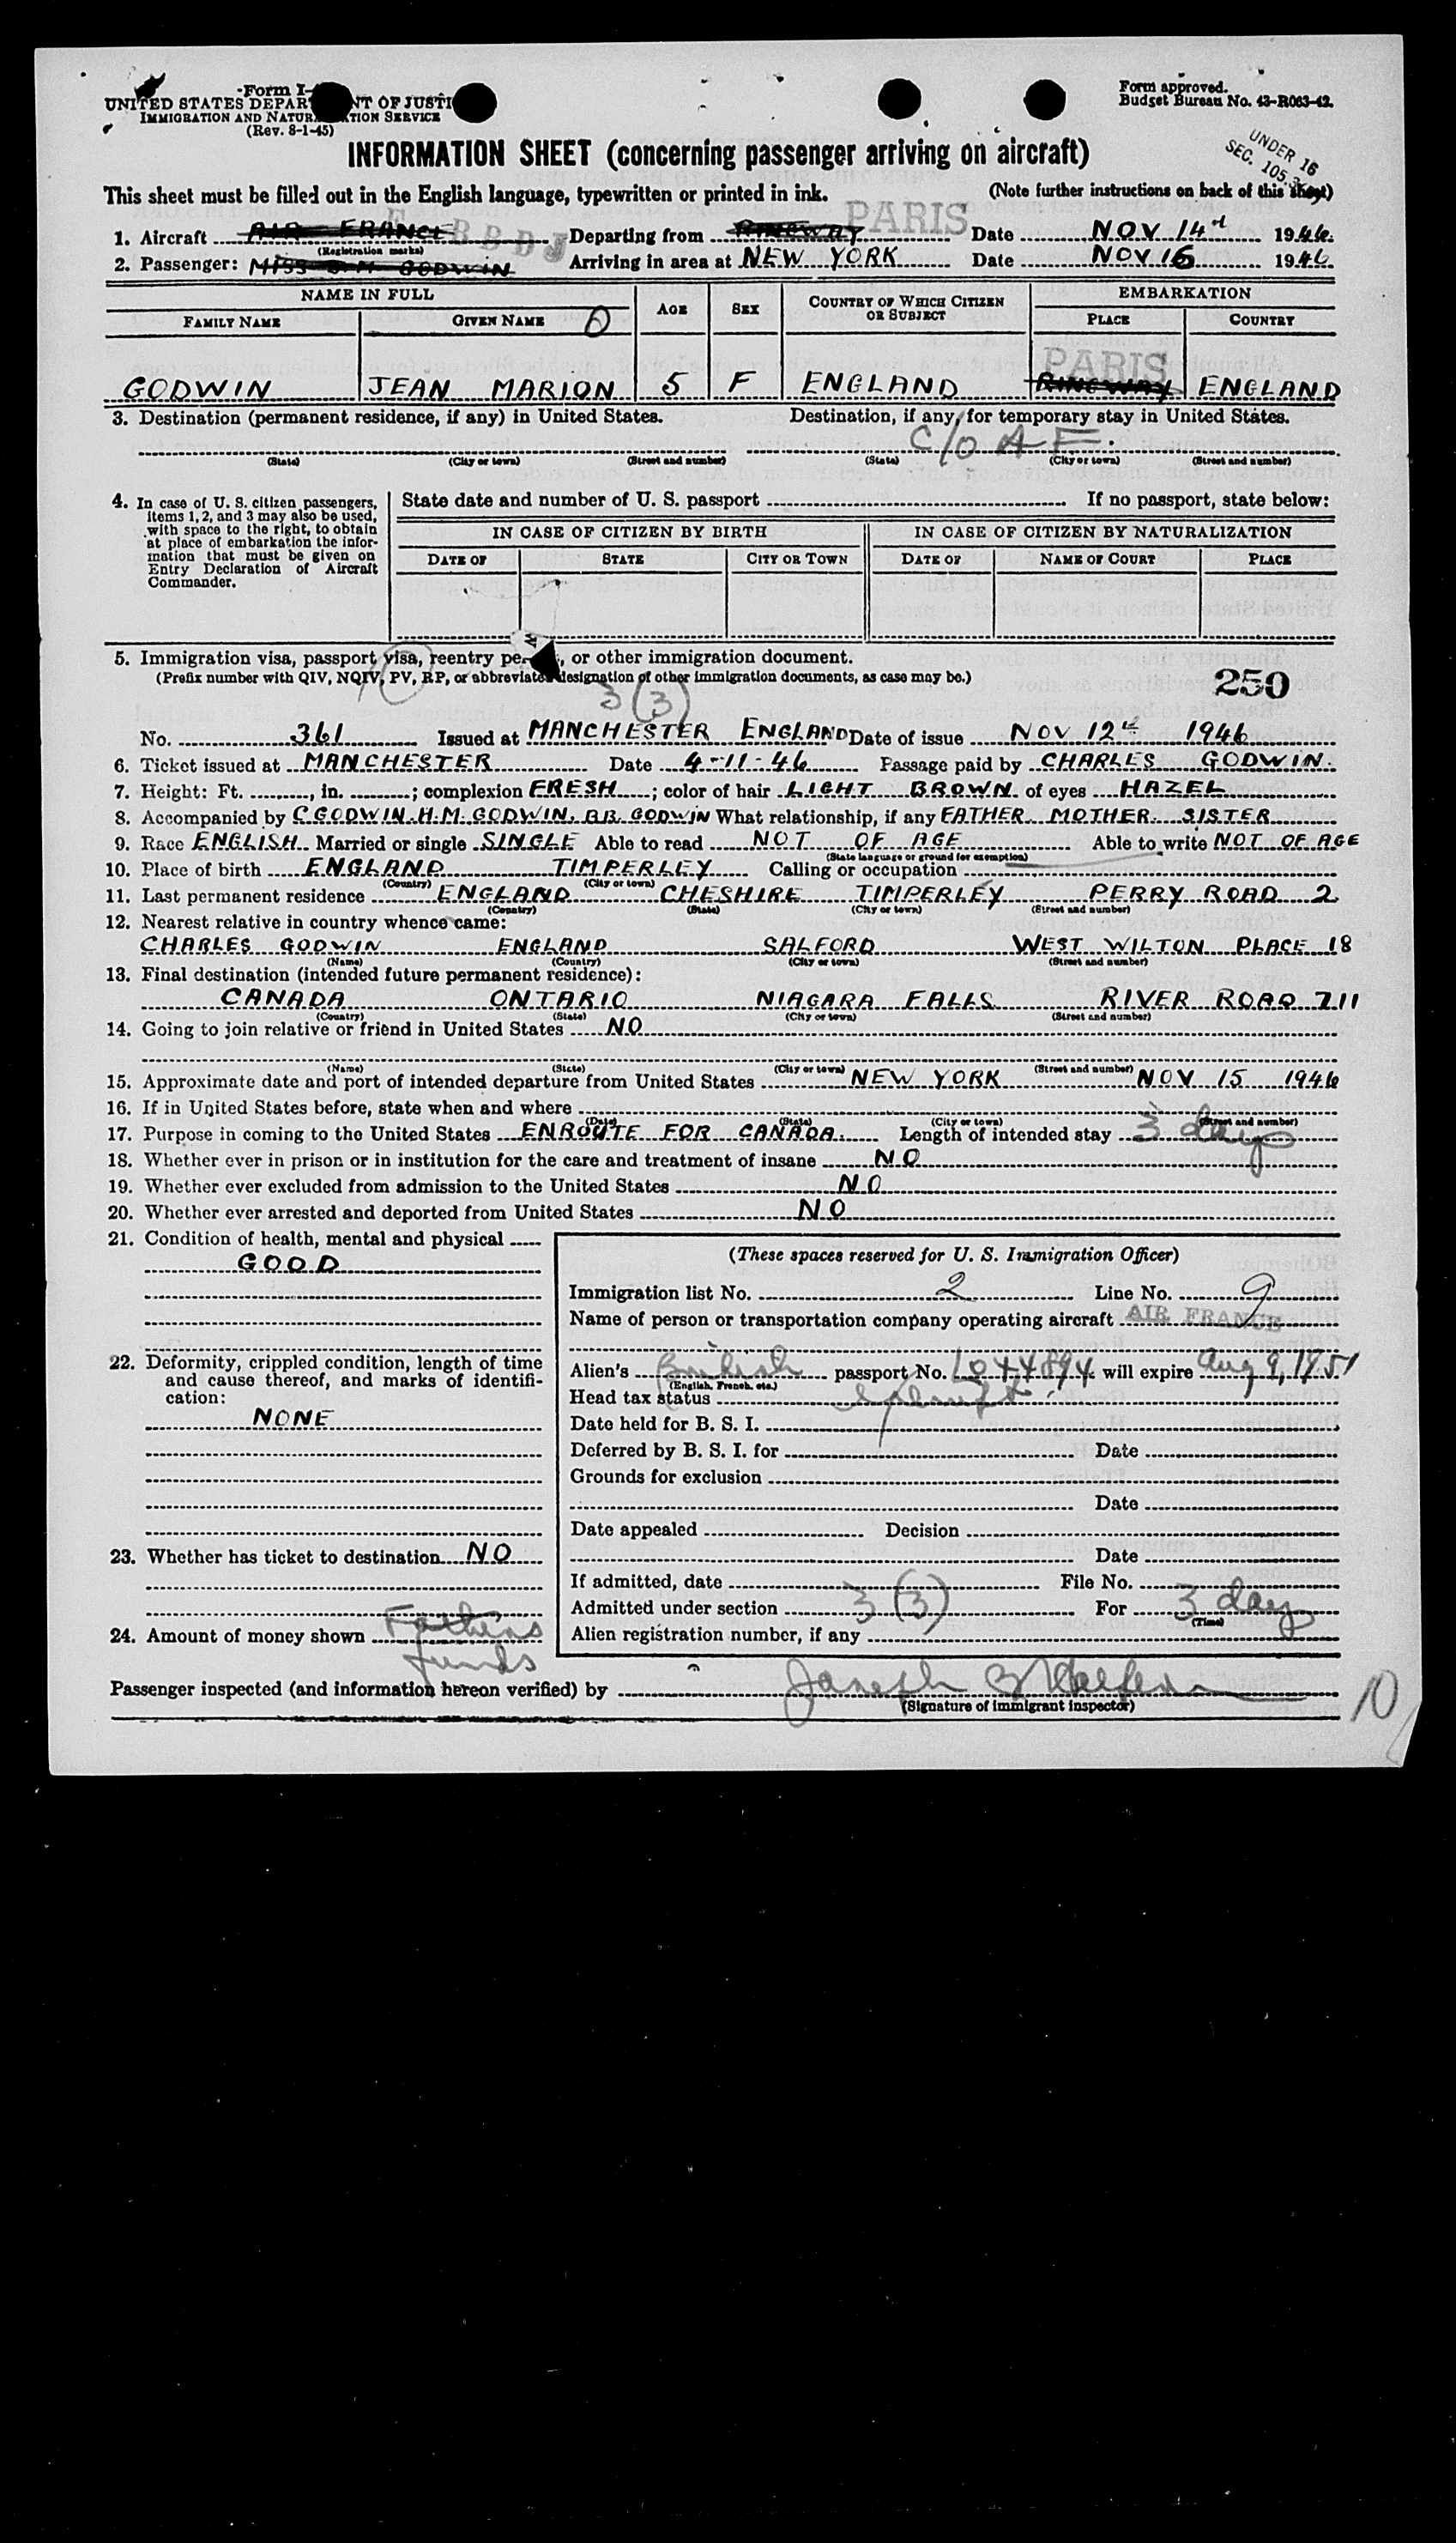 Form I-
UNITED STATES DEPAR NT OF JUSTI
IMMIGRATION AND NATUR TION SERVICE
(Rev. 8-1-45)
Form approved.
Budget Bureau No. 43-R063-42.
UNDER 16
SEC. 105.
INFORMATION SHEET (concerning passenger arriving on aircraft)
This sheet must be filled out in the English language, typewritten or printed in ink. (Note further instructions on back of this sheet)
1. Aircraft AIR FRANCE F BBDJ Departing from RINGWAY PARIS Date NOV 14th 1946.
(Registration marks)
2. Passenger: MISS J M GODWIN Arriving in area at NEW YORK Date NOV 16 1946
NAME IN FULL AGE SEX COUNTRY OF WHICH CITIZEN OR SUBJECT EMBARKATION
FAMILY NAME GIVEN NAME PLACE COUNTRY
PARIS
GODWIN JEAN MARION 5 F ENGLAND RINGWAY ENGLAND
3. Destination (permanent residence, if any) in United States. Destination, if any, for temporary stay in United States.
C/O A F.
(State) (City or town) (Street and number) (State) (City or town) (Street and number)
4. In case of U. S. citizen passengers, items 1, 2, and 3 may also be used, with space to the right, to obtain at place of embarkation the information that must be given on Entry Declaration of Aircraft Commander.
State date and number of U. S. passport If no passport, state below:
IN CASE OF CITIZEN BY BIRTH IN CASE OF CITIZEN BY NATURALIZATION
DATE OF STATE CITY OR TOWN DATE OF NAME OF COURT PLACE
5. Immigration visa, passport visa, reentry pe , or other immigration document.
(Prefix number with QIV, NQIV, PV, RP, or abbreviated designation of other immigration documents, as case may be.) 250
3 (3)
No. 361 Issued at MANCHESTER ENGLAND Date of issue NOV 12th 1946
6. Ticket issued at MANCHESTER Date 4-11-46 Passage paid by CHARLES GODWIN.
7. Height: Ft. , in. ; complexion FRESH ; color of hair LIGHT BROWN of eyes HAZEL
8. Accompanied by C GODWIN. H.M. GODWIN. B.B. GODWIN What relationship, if any FATHER. MOTHER. SISTER
9. Race ENGLISH Married or single SINGLE Able to read NOT OF AGE Able to write NOT OF AGE
(State language or ground for exemption)
10. Place of birth ENGLAND TIMPERLEY Calling or occupation
(Country) (City or town)
11. Last permanent residence ENGLAND CHESHIRE TIMPERLEY PERRY ROAD 2.
(Country) (State) (City or town) (Street and number)
12. Nearest relative in country whence came:
CHARLES GODWIN ENGLAND SALFORD WEST WILTON PLACE 18
(Name) (Country) (City or town) (Street and number)
13. Final destination (intended future permanent residence):
CANADA ONTARIO NIAGARA FALLS RIVER ROAD 711
(Country) (State) (City or town) (Street and number)
14. Going to join relative or friend in United States NO
(Name) (State) (City or town) (Street and number)
15. Approximate date and port of intended departure from United States NEW YORK NOV 15 1946
16. If in United States before, state when and where
(Date) (State) (City or town) (Street and number)
17. Purpose in coming to the United States ENROUTE FOR CANADA Length of intended stay 3 days
18. Whether ever in prison or in institution for the care and treatment of insane NO
19. Whether ever excluded from admission to the United States NO
20. Whether ever arrested and deported from United States NO
21. Condition of health, mental and physical
GOOD
22. Deformity, crippled condition, length of time and cause thereof, and marks of identification:
NONE
23. Whether has ticket to destination NO
24. Amount of money shown Fathers
funds
(These spaces reserved for U. S. Immigration Officer)
Immigration list No. 2 Line No. 9
Name of person or transportation company operating aircraft AIR FRANCE
Alien's British passport No. L044894 will expire Aug 9, 1951
(English, French, etc.)
Head tax status
Date held for B. S. I.
Deferred by B. S. I. for Date
Grounds for exclusion
Date
Date appealed Decision
Date
If admitted, date File No.
Admitted under section 3 (3) For 3 days
(Time)
Alien registration number, if any
Passenger inspected (and information hereon verified) by Joseph
(Signature of immigrant inspector)
10